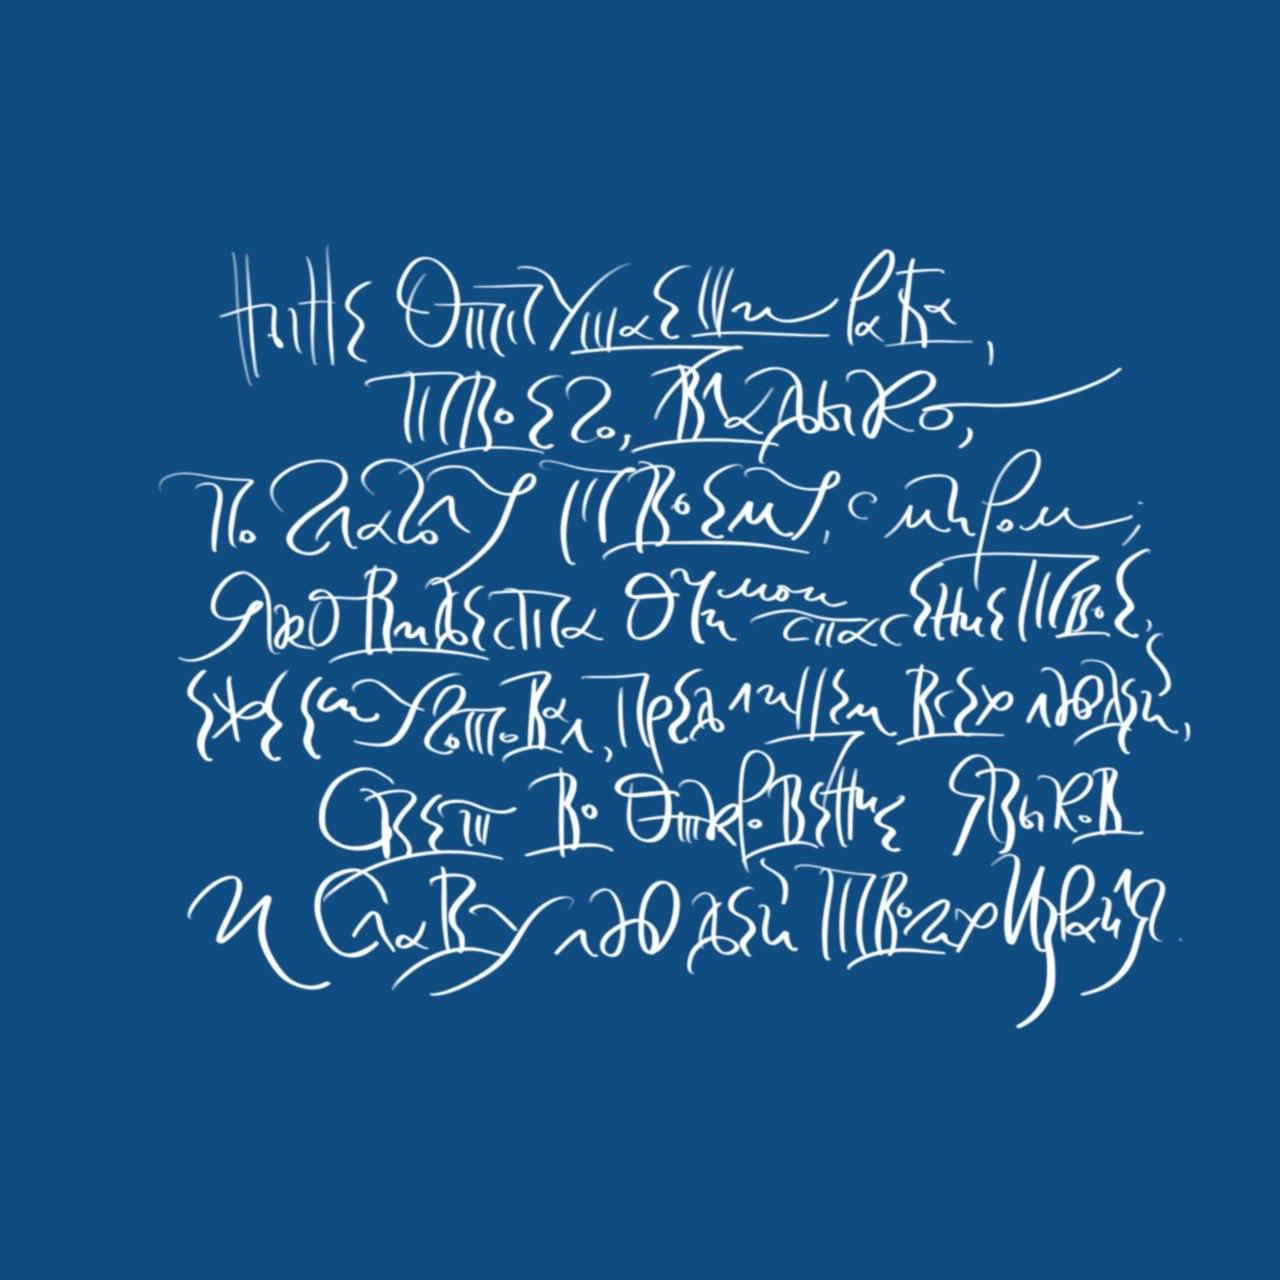 Ныне Отпущаеши раба
Твоего, Владыко,
По глаголу Твоему, с миром;
Яко видеста Очи мои спасение Твое,
еже еси уготовал, Пред лицем всех людей,
Свет во Откровение языков
и Славу людей Твоих Израиля.